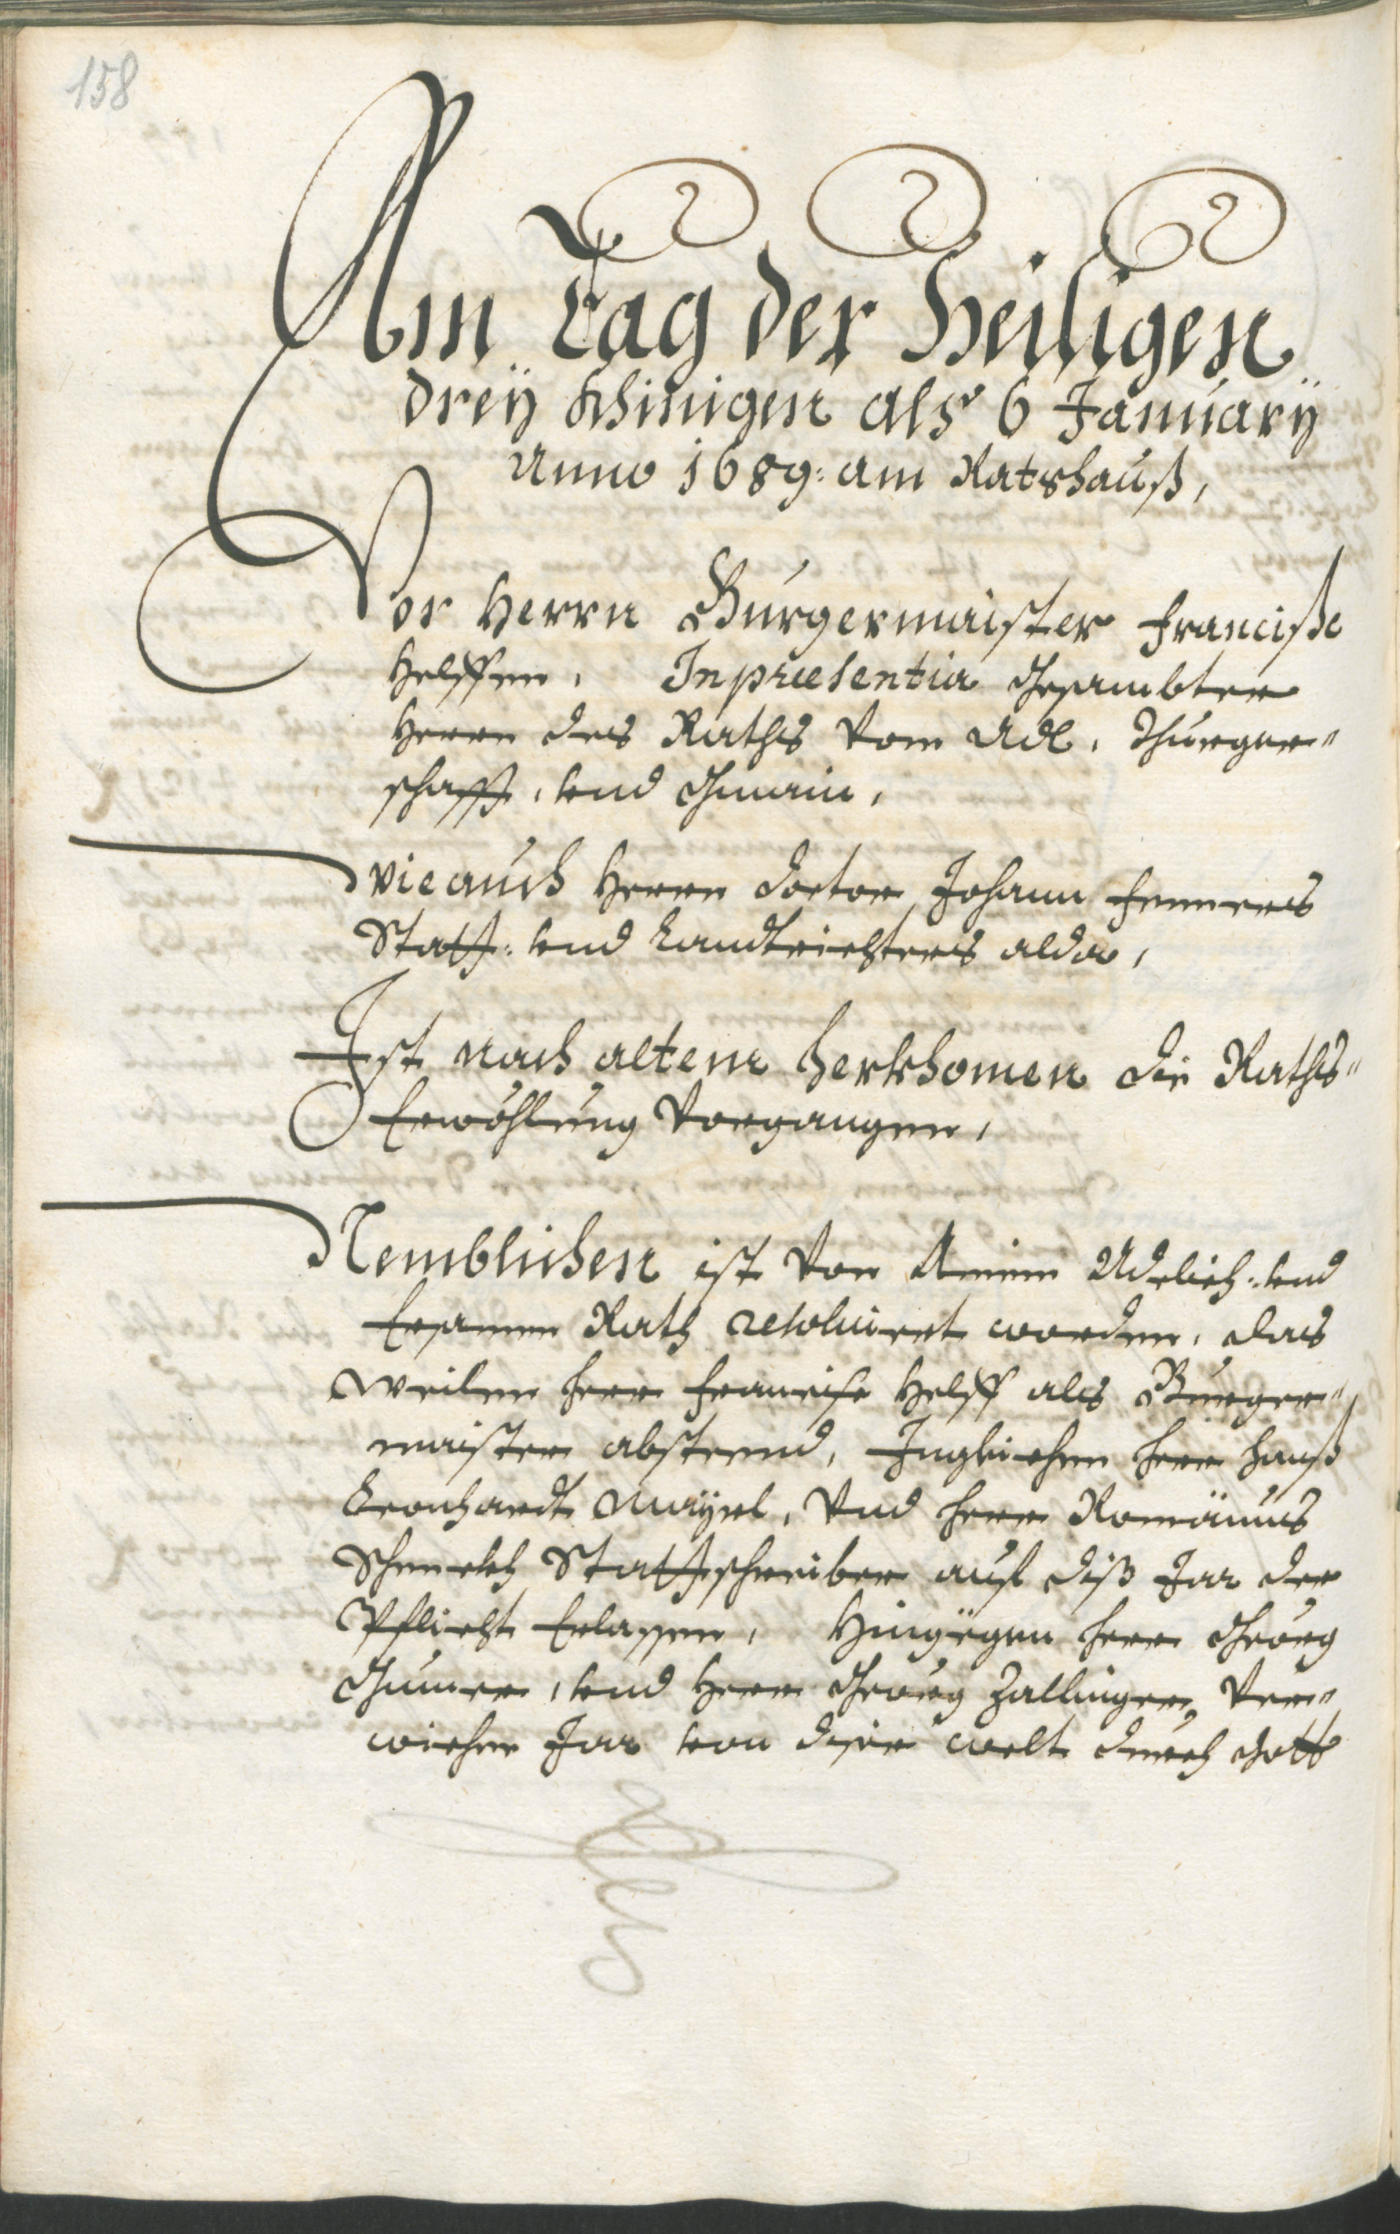 158
Am Tag der Heiligen
drey Khinigen als 6 January
Anno 1689: am Rathauß,
Vor Herrn Burgermaister Francisc
Helffen, In præsentia Gesambten
Herrn des Raths vom Adl, Burger=
schafft, und Gmain,
Wie auch Herrn Doctor Johann
Statt= und Landtrichters alda,
Ist nach altem herkhomen die Raths=
Erwöhlung vorgangen,
Nemblichen ist von Ainem Adelich= und
Ersamen Rath resolviert worden, das
weilen Herr Francisc Helff als Burger=
maister absteend, Ingleichen Herr Hanß
Leonhardt Mayrl, Und Herr Romänus
Schenckh Stattschreiber auf diß Jar der
Pflicht Erlassen, Hingegen Herr Georg
Gumer, und Herr Georg Zallinger, Ver=
wichen Jar von diser welt durch Gott